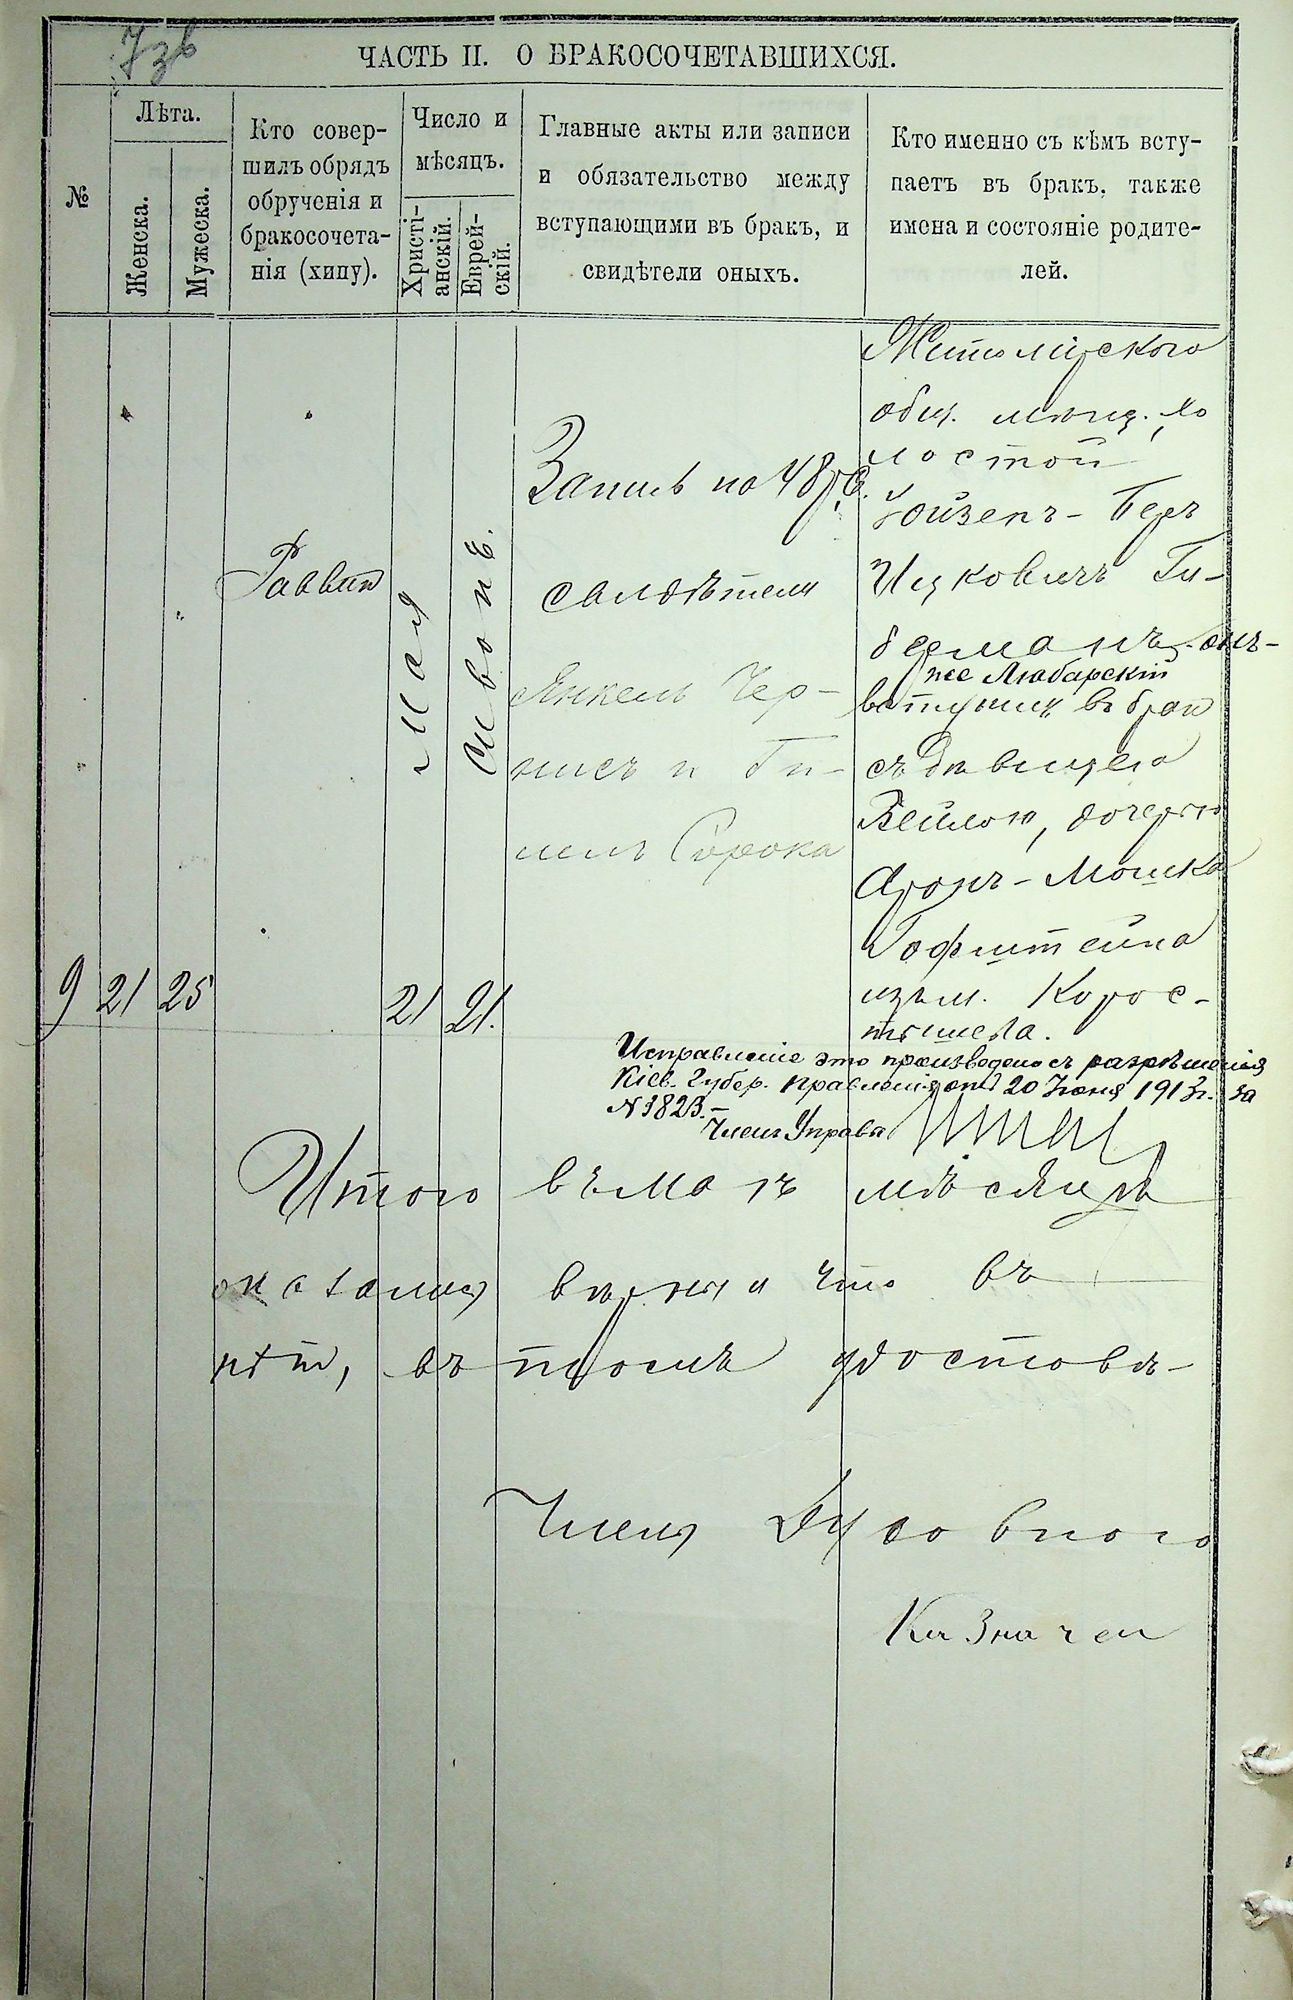 7 зв
ЧАСТЬ II. О БРАКОСОЧЕТАВШИХСЯ.
№
Лѣта.
Женска.
Мужеска.
Кто совер-
шилъ обрядъ
обрученія и
бракосочета-
нія (хипу).
Число и
мѣсяцъ.
Христі-
анскій.
Еврей-
скій.
Главные акты или записи
и обязательство между
вступающими въ бракъ, и
свидѣтели оныхъ.
Кто именно съ кѣмъ всту-
паетъ въ бракъ, также
имена и состояніе родите-
лей.
9
21
25
Раввин
Мая
21
Сивонъ.
21.
Запись на 48 р. с.
свидѣтели
Янкель Чер-
нисъ и Ги-
шъ Сорока
Житомірского
общ. мѣщ. хо
лостой
Бер
Ицковичъ Ги-
берманъ-онъ-
же Любарскій
вступилъ в брак
съ дѣвицею
Бейлою, дочерью
Аронъ-Мошка
Гофштейна
изъ м. Корос-
тышева.
Исправленіе это произведено съ разрѣшенія
Кіев. Губер. Правленія отъ 20 Іюня 1913 г. за
№ 3823.—
Членъ Управы
Итого въ маѣ мѣсяцѣ
оказались вѣрны и что въ
нѣт, въ томъ удостовѣ-
Члены Духовного
Казначеи